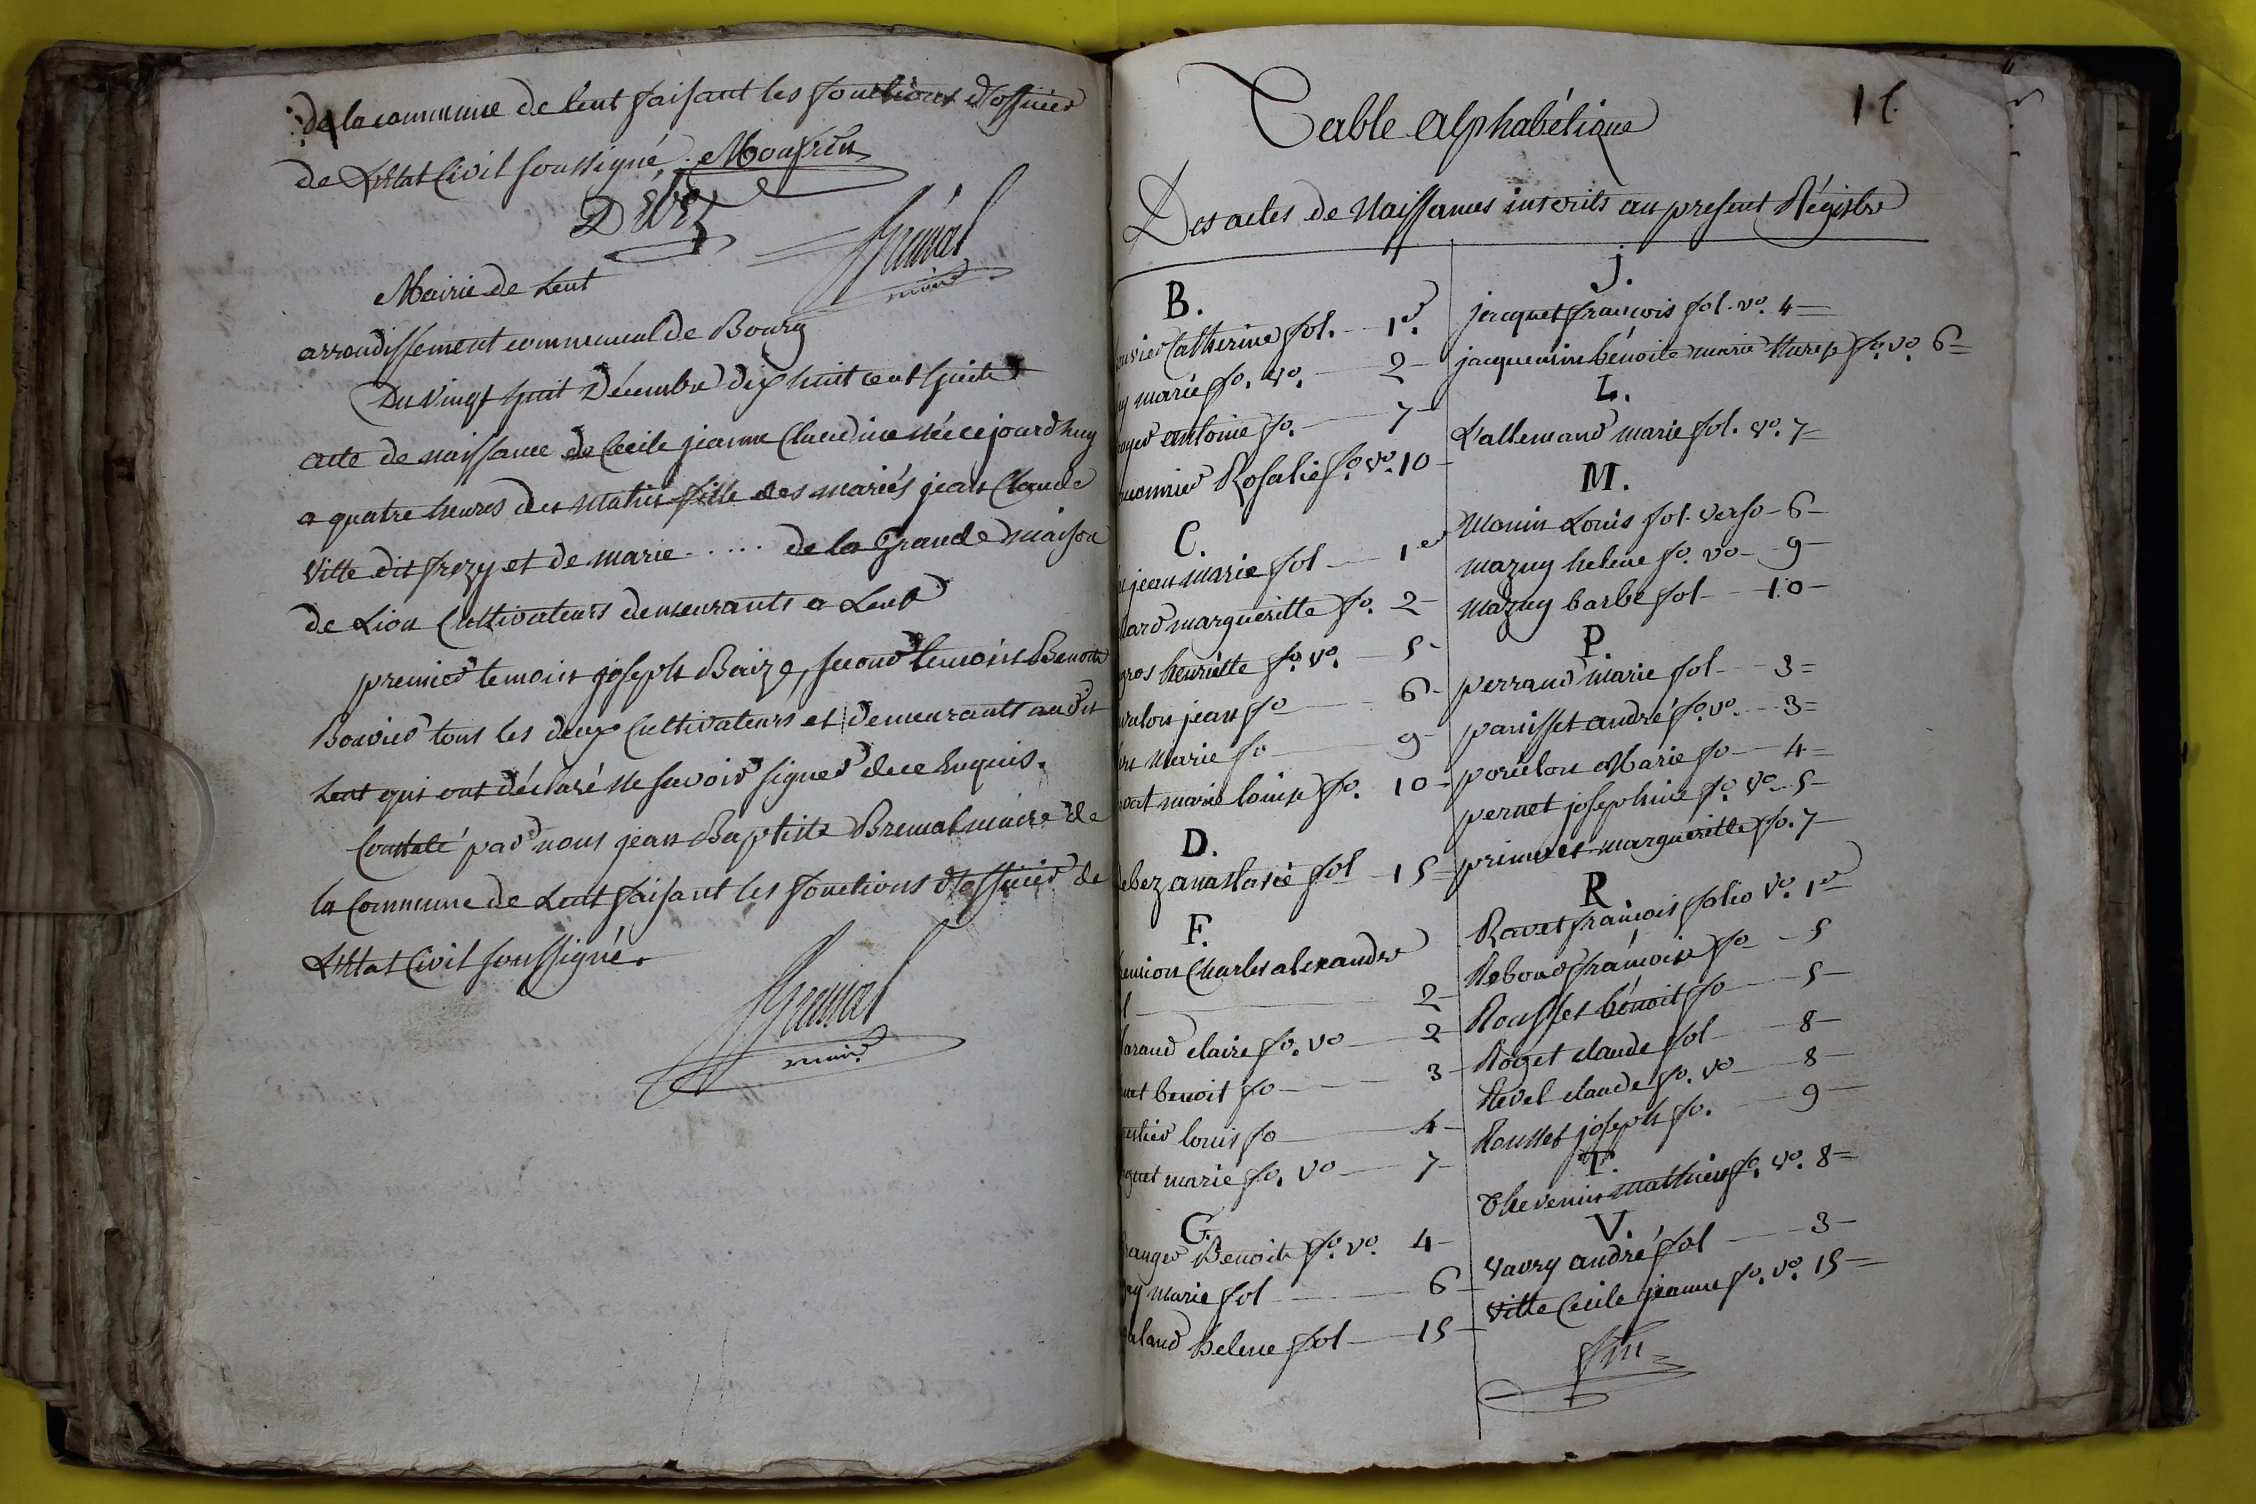 de la commune de Lent faisant les fonctions d'officier
de L'Etat Civil soussigné,
Debez
Mairie de Lent
arrondissement communal de Bourg
Du vingt huit Décembre dix huit cent huit
acte de naissance de Cecile jeanne Claudine née ce jourd'huy
a quatre heures du matin fille des mariés jean Claude
Ville dit frezy et de marie ..... de la Grande maison
de Lion Cultivateurs demeurants a Lent
premier temoin joseph Baize, second temoin Benoit
Bouvier tous les deux Cultivateurs et demeurants au dit
Lent qui ont déclaré ne savoir signer de ce Enquis.
Constaté par nous jean Baptiste Bremal maire de
la Commune de Lent faisant les fonctions d'officier de
L'Etat Civil soussigné.
maire
Table alphabétique
Des actes de Naissances inscrits au present Régistre
B.
ouvier Catherine fol. 1er
y marie fo. vo. 2
oyer antoine fo. 7
Rosalie fo. vo. 10
C.
jean marie fol 1er
lard margueritte fo. 2
gros henriette fo. vo. 5
valon jean fo 6
marie fo 9
marie louise fo. 10
D.
ebez anastasie fol 15
F.
Charles alexandre
l 2
arand claire fo. vo 2
uet benoit fo 3
louis fo 4
guet marie fo. vo 7
G.
ranger Benoit fo. vo. 4
y marie fol 6
aland helene fol 15
J.
jacquet françois fol. vo. 4
jacquemin bénoite marie therese fo. vo. 6
L.
L'allemand marie fol. vo. 7
M.
Monin Louis fol. verso 6
Mazuy helene fo. vo 9
Mazuy barbe fol 10
P.
perraud marie fol 3
panisset andré fo. vo. 3
poncelon Marie fo 4
pernet josephine fo. vo. 5
margueritte fo. 7
R
Ravet françois folio vo. 1er
Reboud françoise fo 5
Rousset bénoit fo 5
Roget claude fol 8
Revel claude fo. vo 8
Rousset joseph fo. 9
T.
Thevenin mathieu fo. vo. 8
V.
Vavry andré fol 3
Ville Cecile jeanne fo. vo. 15
fin